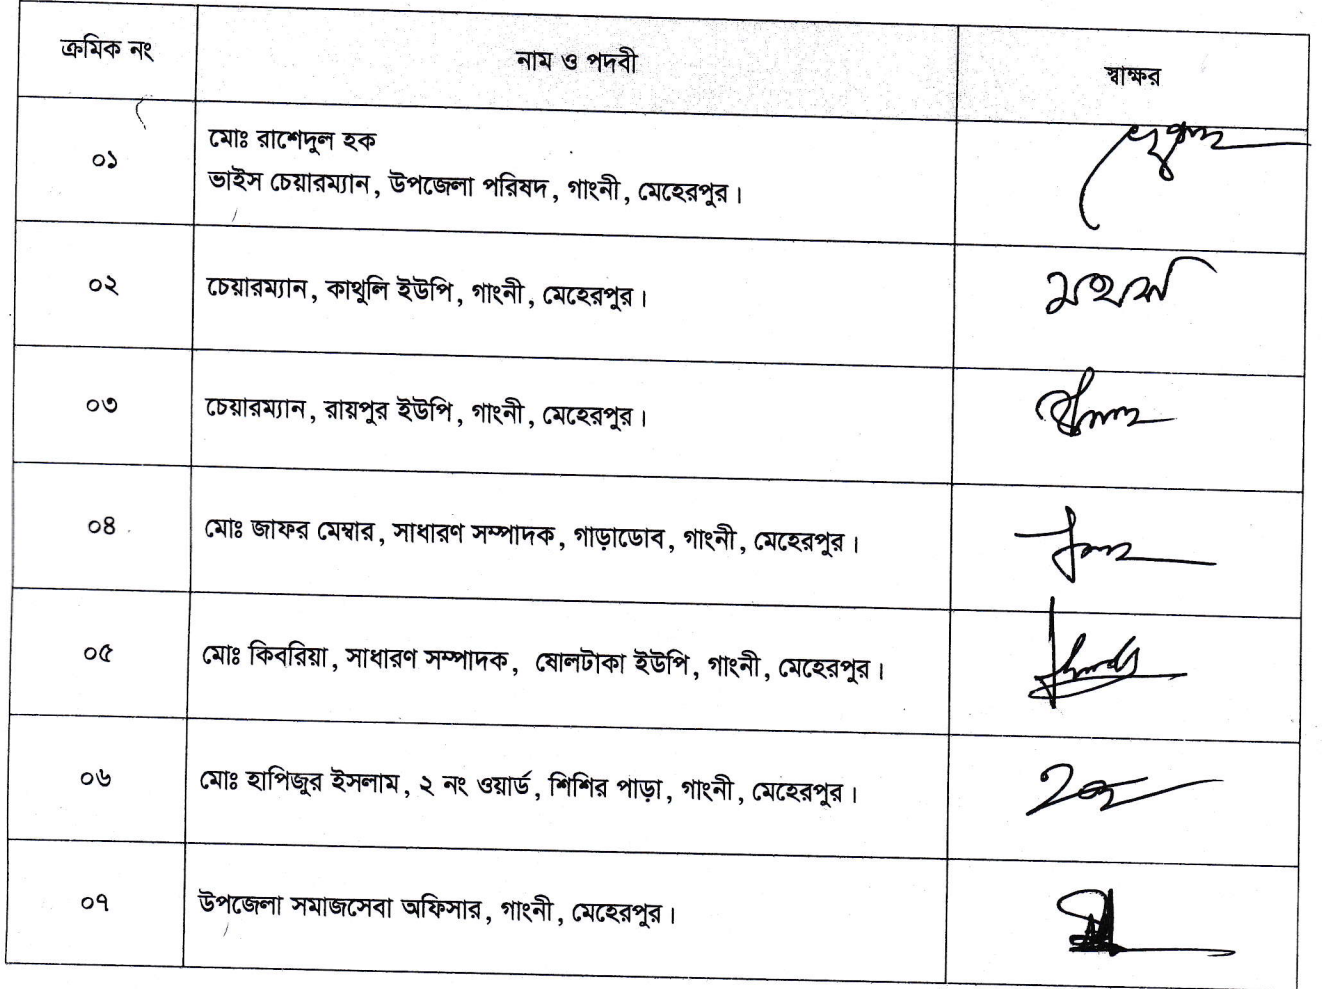 ক্রমিক নং
নাম ও পদবী
স্বাক্ষর
০১
মোঃ রাশেদুল হক
ভাইস চেয়ারম্যান, উপজেলা পরিষদ, গাংনী, মেহেরপুর।
০২
চেয়ারম্যান, কাথুলি ইউপি, গাংনী, মেহেরপুর।
০৩
চেয়ারম্যান, রায়পুর ইউপি, গাংনী, মেহেরপুর।
০৪
মোঃ জাফর মেম্বার, সাধারণ সম্পাদক, গাড়াডোব, গাংনী, মেহেরপুর।
০৫
মোঃ কিবরিয়া, সাধারণ সম্পাদক, ষোলটাকা ইউপি, গাংনী, মেহেরপুর।
০৬
মোঃ হাপিজুর ইসলাম, ২ নং ওয়ার্ড, শিশির পাড়া, গাংনী, মেহেরপুর।
০৭
উপজেলা সমাজসেবা অফিসার, গাংনী, মেহেরপুর।